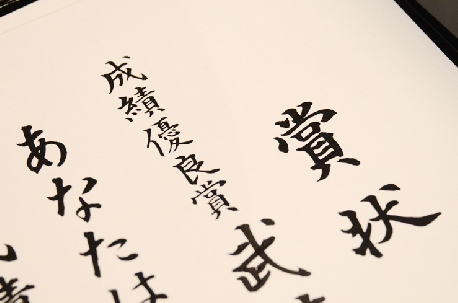 賞状
武
成績優良賞
あなたは